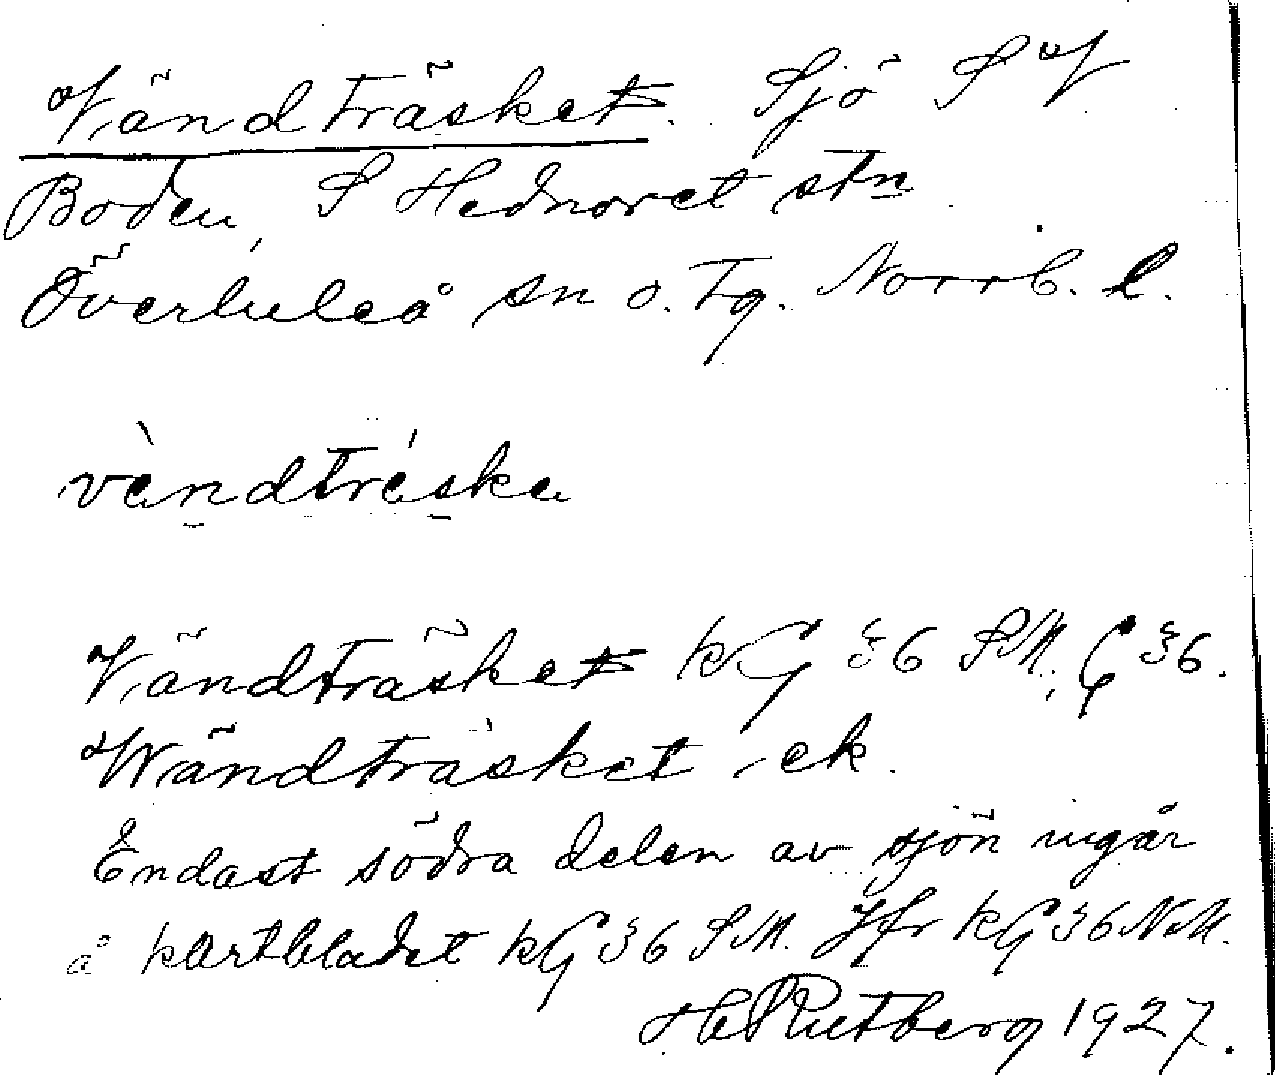 Vändträsket. Sjö S V
Boden, S Hednoret stn
Överluleå sn o. tg. Norrb. l.
vàndtréska
Vändträsket kG 36 SM, G 36.
Wändträsket, ek.
Endast södra delen av sjön ingår
å kartbladet kG 36 SM. Jfr kG 36 NM.
H Rutberg 1927.